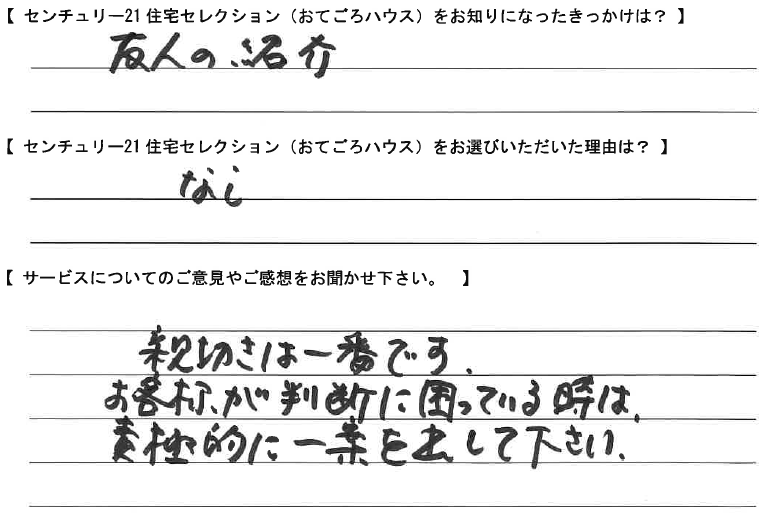 【 センチュリー21 住宅セレクション（おてごろハウス）をお知りになったきっかけは？ 】
友人の紹介
【 センチュリー21 住宅セレクション（おてごろハウス）をお選びいただいた理由は？ 】
なし
【 サービスについてのご意見やご感想をお聞かせ下さい。 】
親切さは一番です.
お客様が判断に困っている時は,
責極的に一案を出して下さい.